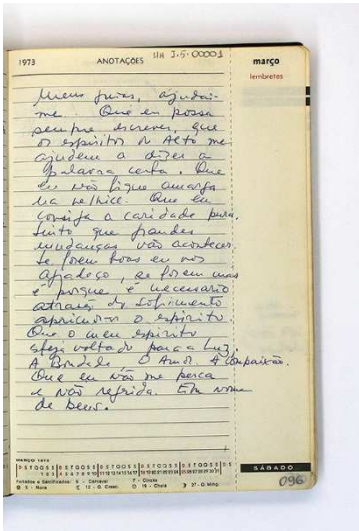 1973 ANOTAÇÕES HH J.5.00001 março
lembretes
Meus guias, ajudai-
me. Que eu possa
sempre escrever, que
os espíritos do Alto me
ajudem a dizer a
palavra certa. Que
eu não fique amarga
na velhice. Que eu
consiga a caridade pura.
Sinto que grandes
mudanças vão acontecer.
Se forem boas eu vos
agradeço, se forem más
é porque é necessário
através do sofrimento
aprimorar o espírito
Que o meu espírito
steja voltado para a Luz,
A Bondade, O Amor, A Compaixão.
Que eu não me perca
e não refrida. Em nome
de Deus.
MARÇO 1973
D S T Q Q S S D S T Q Q S S D S T Q Q S S D S T Q Q S S
Feriados e Santificados: 6 - Carnaval 7 - Cinzas
SÁBADO
096